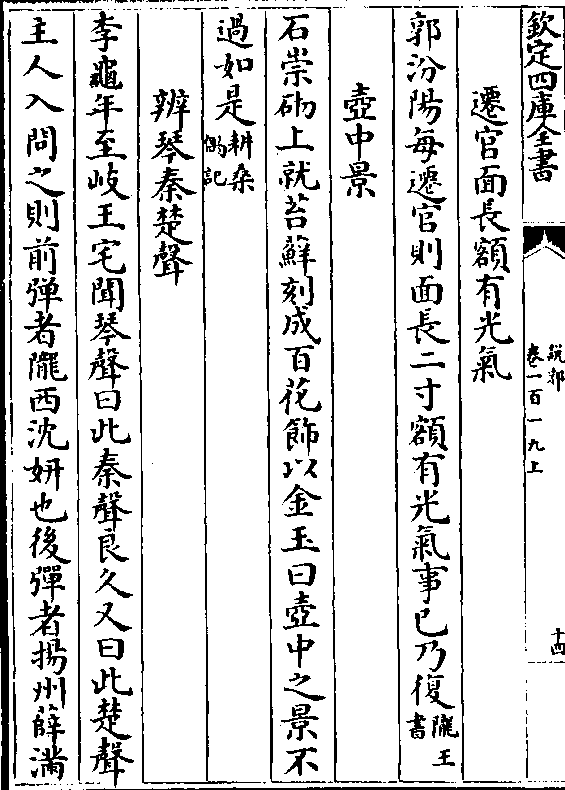 欽定四庫全書
說郛
卷一百一十九上
十四
遷官面長額有光氣
郭汾陽每遷官則面長二寸額有光氣事已乃復隴王
書
壺中景
石崇砌上就苔蘚刻成百花飾以金玉曰壺中之景不
過如是耕桑
偶記
辨琴秦楚聲
李龜年至岐王宅聞琴聲曰此秦聲良久又曰此楚聲
主人入問之則前彈者隴西沈妍也後彈者揚州薛滿